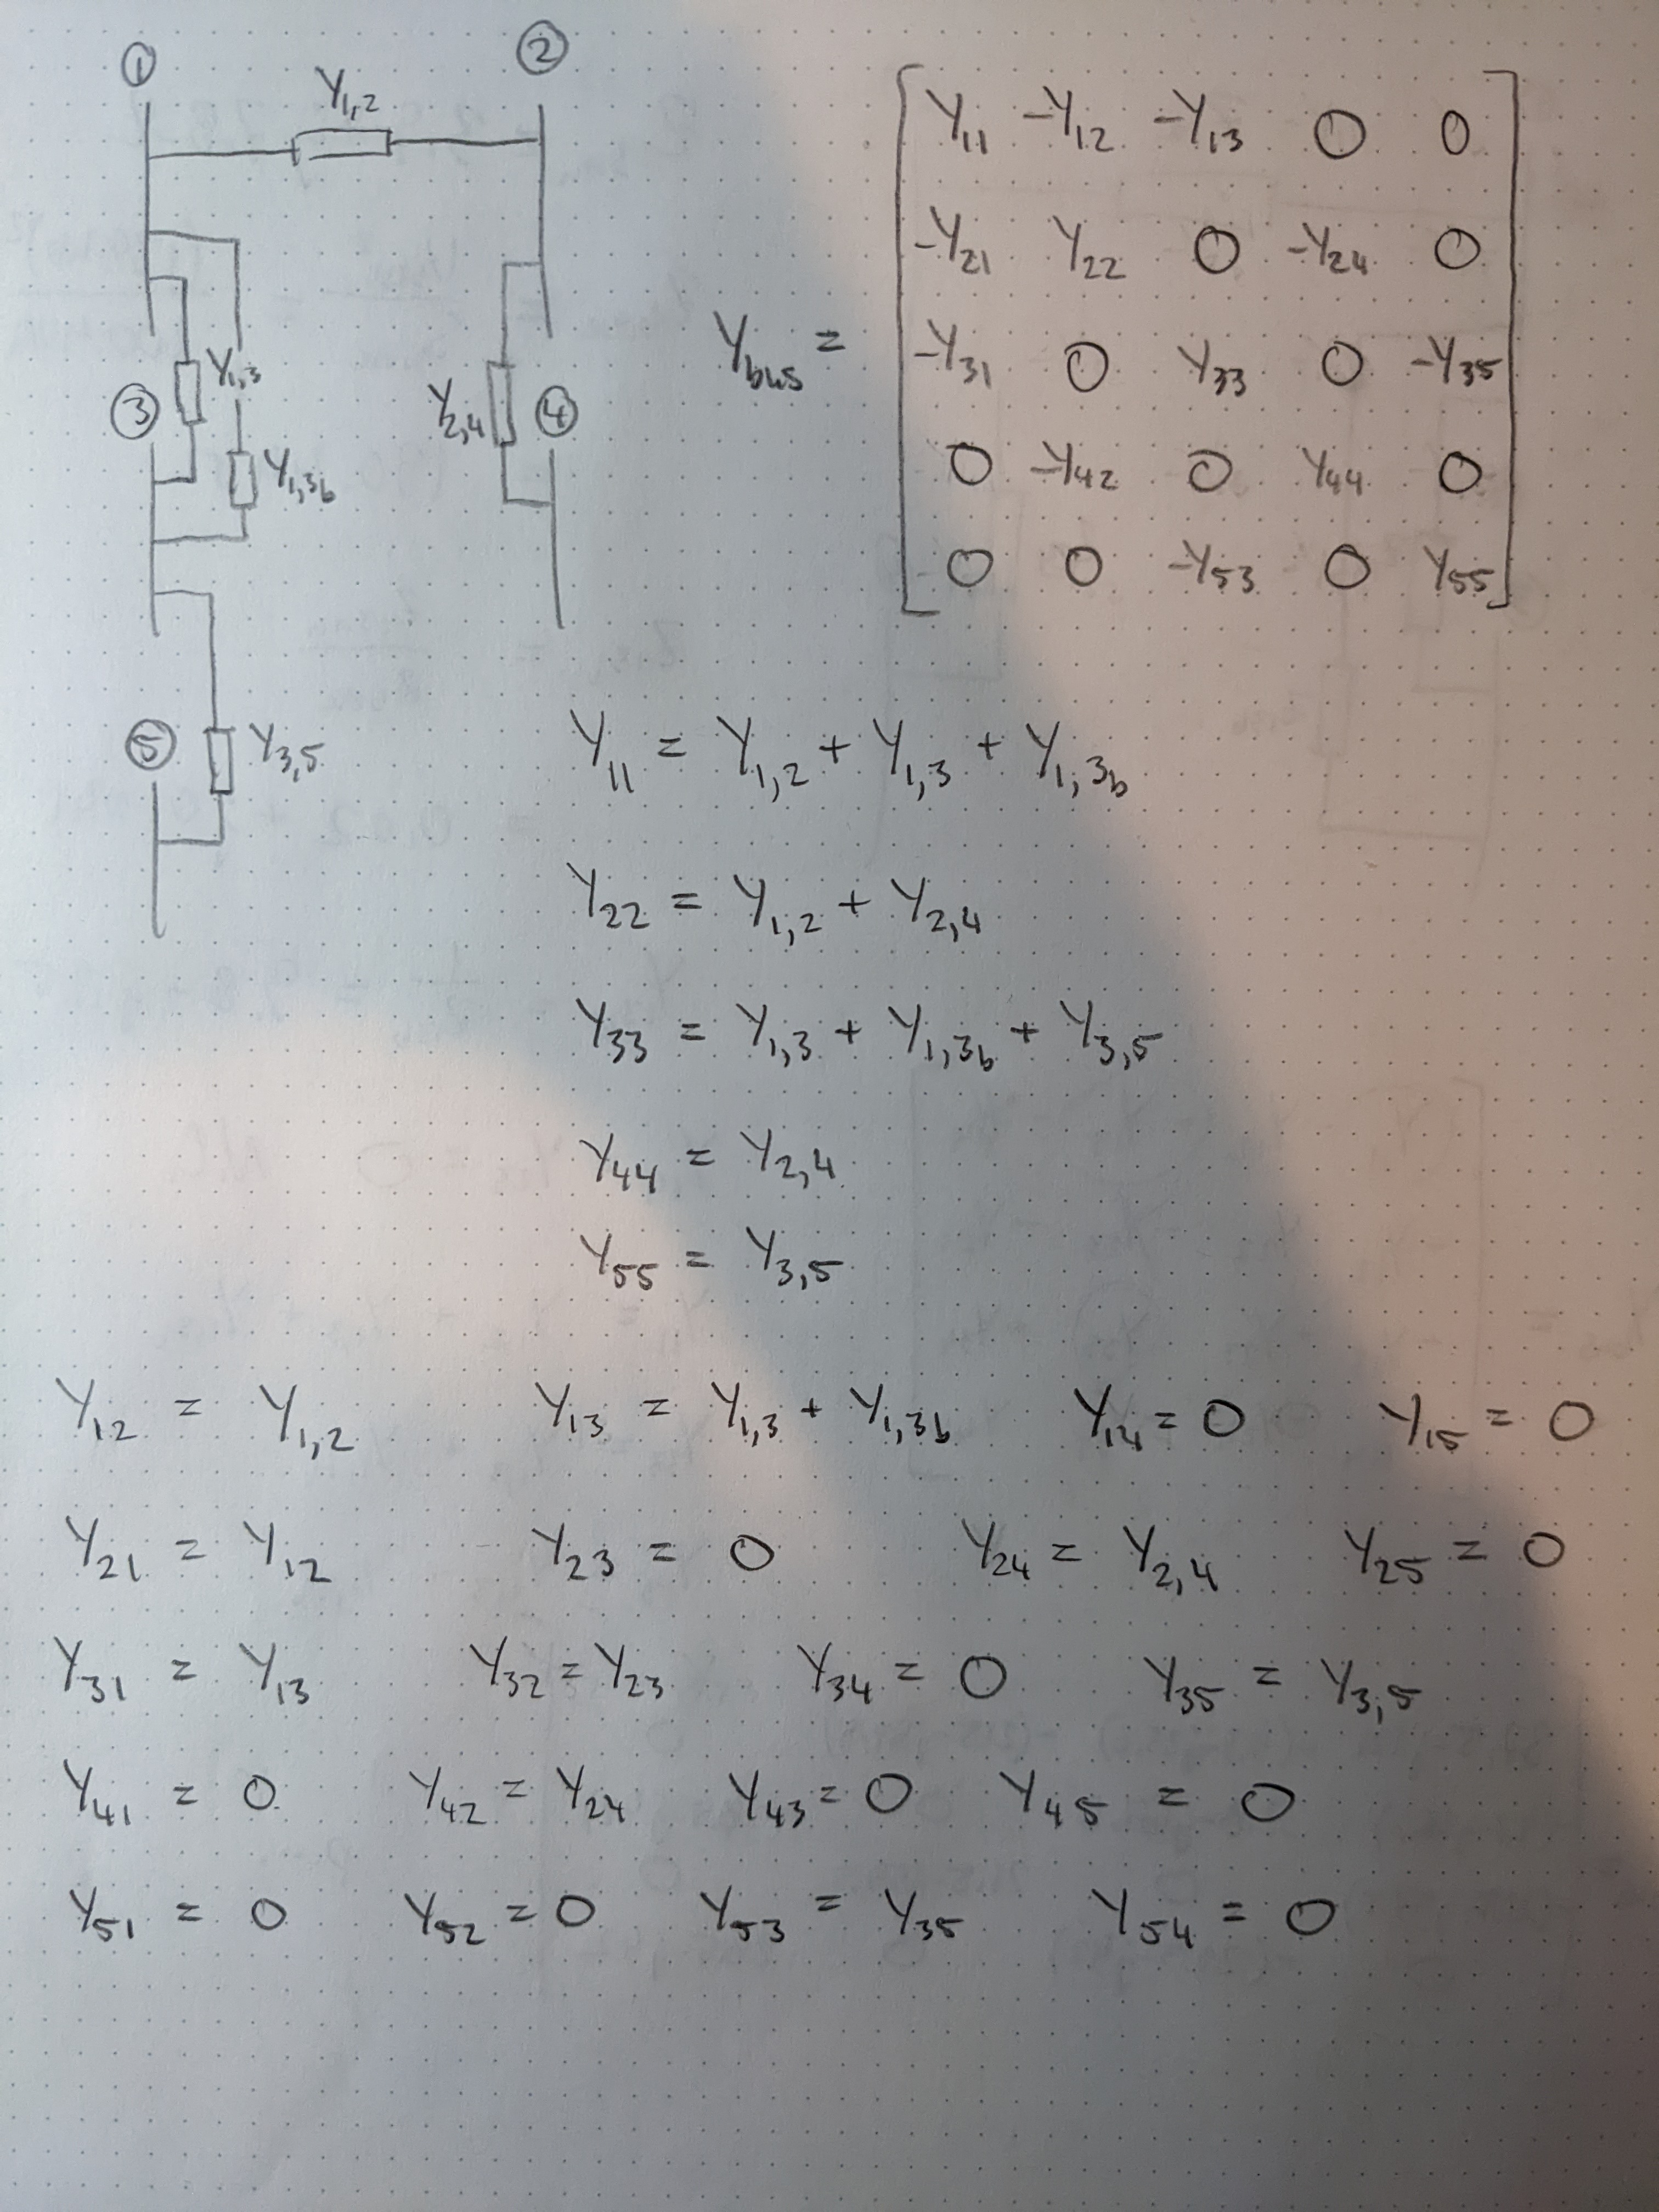 ① ②
Y1,2
Y1,3
③ Y2,4 ④
Y1,3b
⑤ Y3,5
Ybus =
Y11 -Y12 -Y13 0 0
-Y21 Y22 0 -Y24 0
-Y31 0 Y33 0 -Y35
0 -Y42 0 Y44 0
0 0 -Y53 0 Y55
Y11 = Y1,2 + Y1,3 + Y1,3b
Y22 = Y1,2 + Y2,4
Y33 = Y1,3 + Y1,3b + Y3,5
Y44 = Y2,4
Y55 = Y3,5
Y12 = Y1,2 Y13 = Y1,3 + Y1,3b Y14 = 0 Y15 = 0
Y21 = Y12 Y23 = 0 Y24 = Y2,4 Y25 = 0
Y31 = Y13 Y32 = Y23 Y34 = 0 Y35 = Y3,5
Y41 = 0 Y42 = Y24 Y43 = 0 Y45 = 0
Y51 = 0 Y52 = 0 Y53 = Y35 Y54 = 0